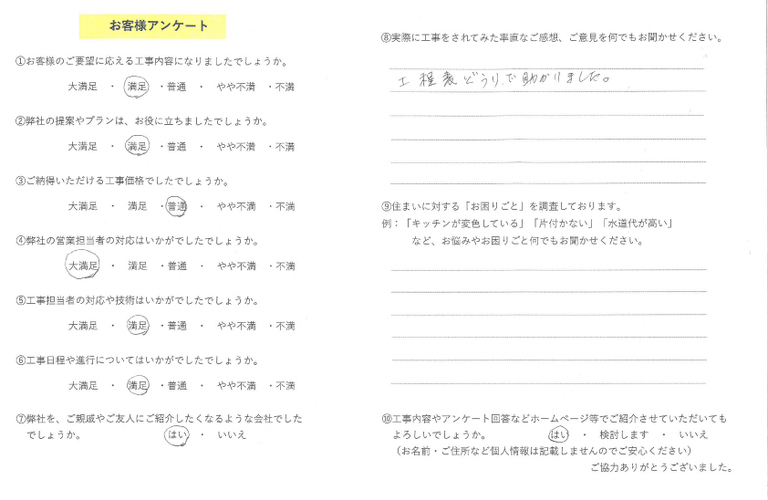 お客様アンケート
①お客様のご要望に応える工事内容になりましたでしょうか。
大満足 ・ 満足 ・普通 ・ やや不満 ・不満
②弊社の提案やプランは、お役に立ちましたでしょうか。
大満足 ・ 満足 ・普通 ・ やや不満 ・不満
③ご納得いただける工事価格でしたでしょうか。
大満足 ・ 満足 ・普通 ・ やや不満 ・不満
④弊社の営業担当者の対応はいかがでしたでしょうか。
大満足 ・ 満足 ・普通 ・ やや不満 ・不満
⑤工事担当者の対応や技術はいかがでしたでしょうか。
大満足 ・ 満足 ・普通 ・ やや不満 ・不満
⑥工事日程や進行についてはいかがでしたでしょうか。
大満足 ・ 満足 ・普通 ・ やや不満 ・不満
⑦弊社を、ご親戚やご友人にご紹介したくなるような会社でした
でしょうか。 はい ・ いいえ
⑧実際に工事をされてみた率直なご感想、ご意見を何でもお聞かせください。
工程表どうりで助かりました。
⑨住まいに対する「お困りごと」を調査しております。
例：「キッチンが変色している」「片付かない」「水道代が高い」
など、お悩みやお困りごと何でもお聞かせください。
⑩工事内容やアンケート回答などホームページ等でご紹介させていただいても
よろしいでしょうか。 はい ・ 検討します ・ いいえ
（お名前・ご住所など個人情報は記載しませんのでご安心ください）
ご協力ありがとうございました。